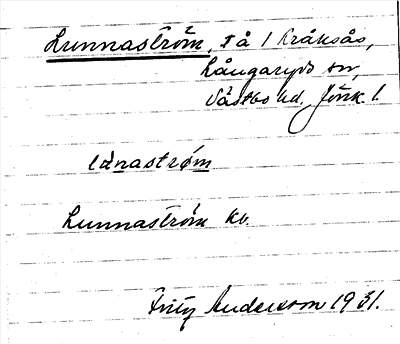 Lunnaström, tå i Kråksås,
Långaryds sn,
Västbo hd, Jönk. l.
Lunnaström kv.
Fritz Anderson 1931.